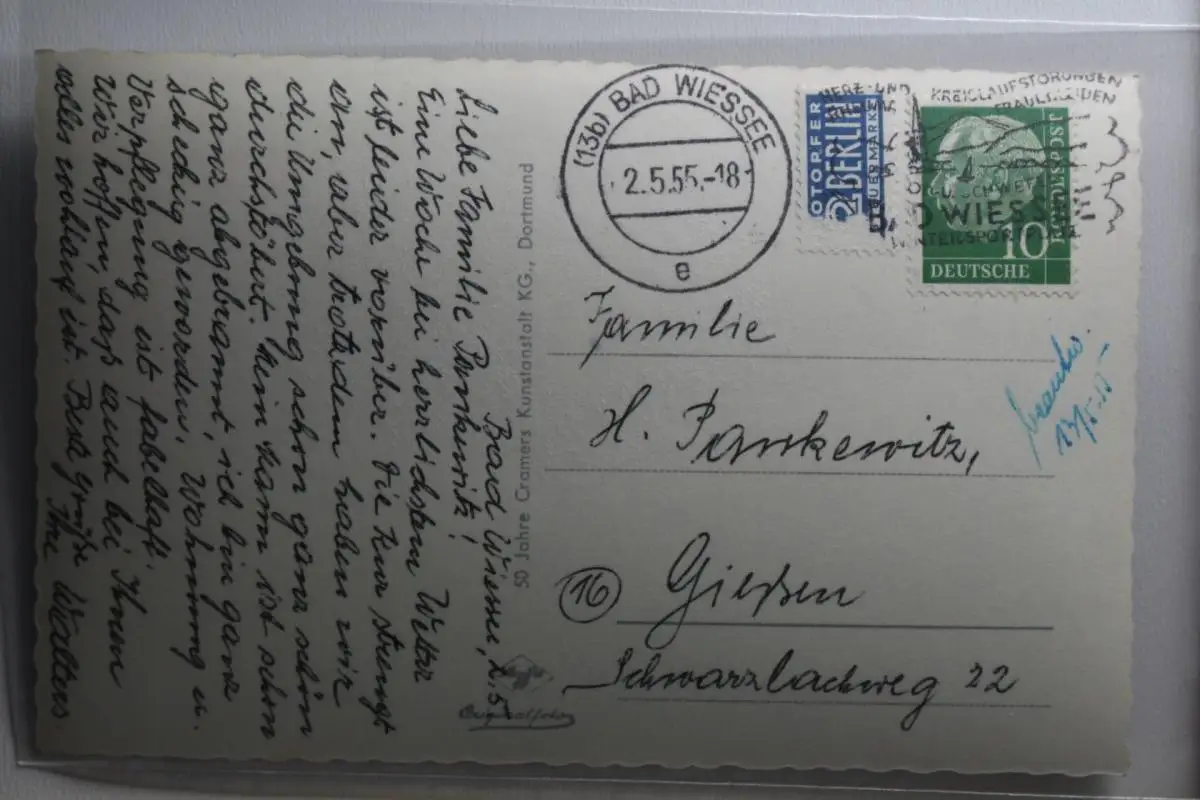 Bad Wiessee, 2.5.
Liebe Familie Pankewitz!
Eine Woche bei herrlichstem Wetter
ist leider vorüber. Die Kur strengt
an, aber trotzdem haben wir
die Umgebung schon ganz schön
durchstöbert. Mein Mann ist schon
ganz abgebrannt, ich bin ganz
scheckig geworden. Wohnung u.
Verpflegung ist fabelhaft.
Wir hoffen, daß auch bei Ihnen
alles wohlauf ist. Beste Grüße
Ihre Walters
50 Jahre Cramers Kunstanstalt KG., Dortmund
Originalfoto
(13b) BAD WIESSEE
2.5.55.-18
e
NOTOPFER
2 BERLIN
STEUERMARKE
HERZ- UND KREISLAUFSTÖRUNGEN
FRAUENLEIDEN
BAD WIESSEE
WINTERSPORT
10
DEUTSCHE
BUNDESPOST
Familie
H. Pankewitz,
(16) Gießen
Schwarzlachweg 22